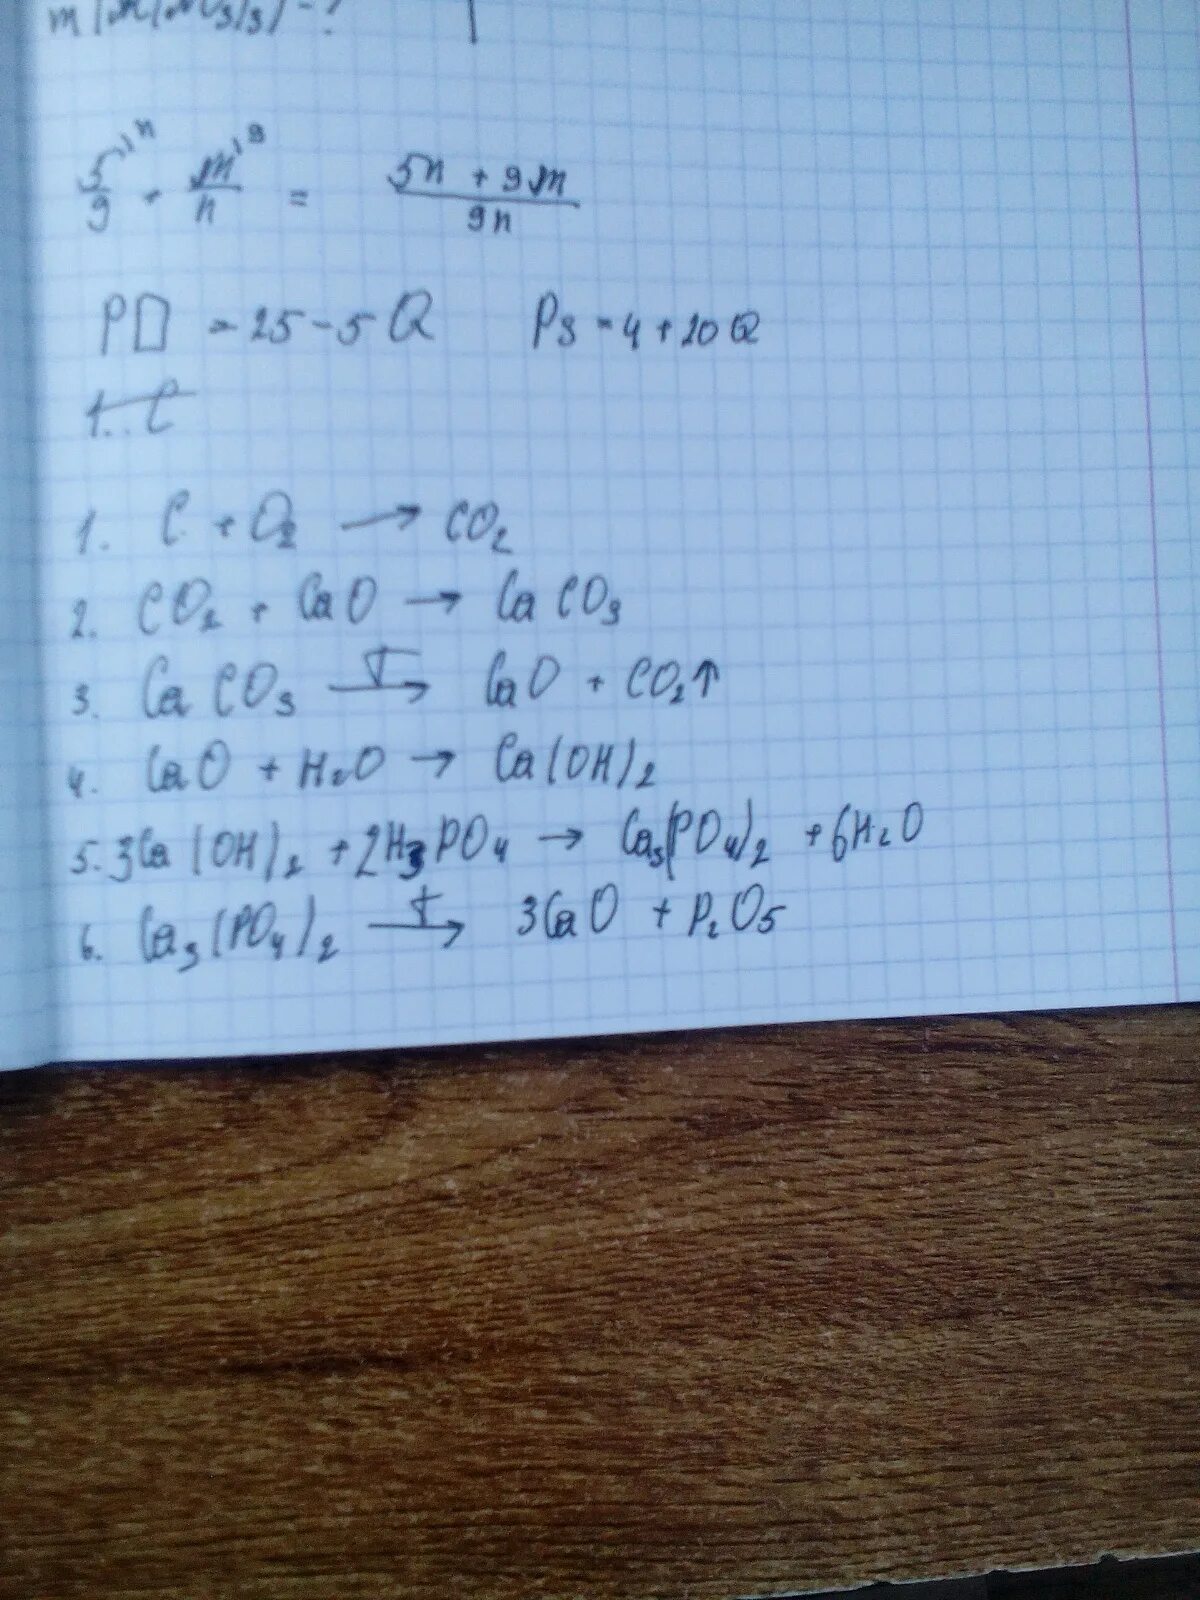 5/9 + m/n = (5n + 9m)/9n
PD = 25 - 5Q Ps = 4 + 20Q
1. C
1. C + O₂ → CO₂
2. CO₂ + CaO → CaCO₃
3. CaCO₃ T→ CaO + CO₂↑
4. CaO + H₂O → Ca(OH)₂
5. 3Ca(OH)₂ + 2H₃PO₄ → Ca₃(PO₄)₂ + 6H₂O
6. Ca₃(PO₄)₂ t→ 3CaO + P₂O₅